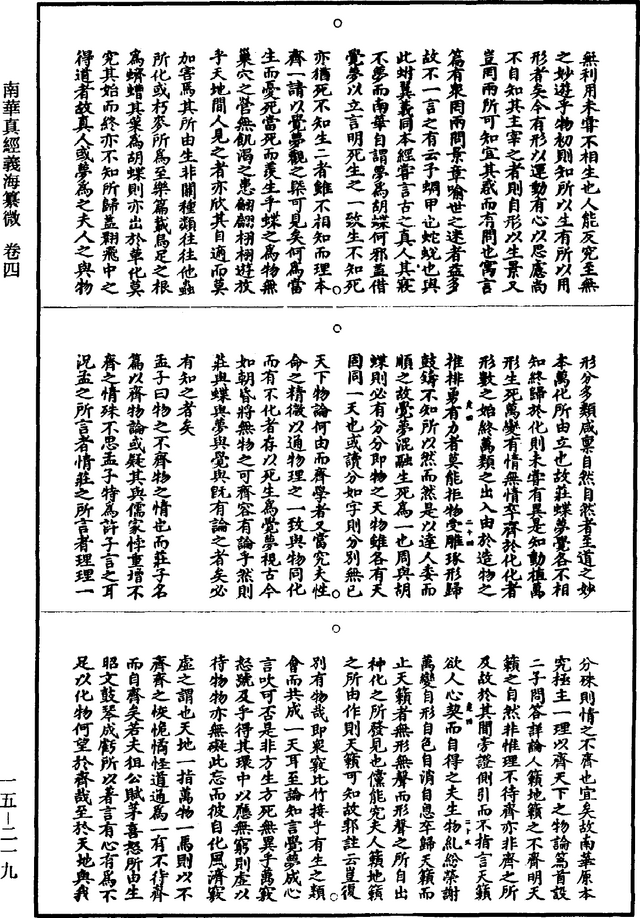 南華真經義海纂微　卷四
無利用未嘗不相生也人能反究至無
之妙遊乎物初則知所以生有所以用
形者矣今有形以運動有心以思慮尚
不自知其主宰之者則自形以生景又
豈罔兩所可知宜其惑而有問也寓言
篇有衆罔兩問景章喻世之迷者益多
故不一言之有云子蜩甲也蛇蛻也與
此蚹翼義同本經嘗言古之真人其寢
不夢而南華自謂夢爲胡蝶何邪蓋借
覺夢以立言明死生之一致生不知死
亦猶死不知生二者雖不相知而理本
齊一請以覺夢觀之槩可見矣何爲當
生而憂死當死而羨生乎蝶之爲物無
巢穴之營無飢渴之患翩翩栩栩遊放
乎天地間人見之者亦欣其自適而莫
加害焉其所由生非關種類往往他蟲
所化或朽麥所爲至樂篇載烏足之根
爲蠐螬其葉爲胡蝶則亦出於草化莫
究其始而終亦不知所歸蓋翾飛中之
得道者故真人或夢爲之夫人之與物
形分多類咸稟自然自然者至道之妙
本萬化所由立也故莊蝶夢覺各不相
知終歸於化則未嘗有異是知動植萬
形生死萬變有情無情卒齊於化化者
形數之始終萬類之出入由於造物之
推排勇有力者莫能拒物受雕琢形歸
鼓鑄不知所以然而然是以達人委而
順之故覺夢混融生死爲一也周與胡
蝶則必有分分即物之天物雖各有天
同一天也或讀分如字則分別無已
天下物論何由而齊學者又當究夫性
命之精微以通物理之一致與物同化
而有不化者存以死生爲覺夢視古今
如朝昏將無物之可齊容有論乎然則
莊與蝶與夢與覺與旣有論之者矣必
有知之者矣
孟子曰物之不齊物之情也而莊子名
篇以齊物論或疑其與儒家悖重增不
齊之情殊不思孟子特爲許子言之耳
況孟之所言者情莊之所言者理理一
分殊則情之不齊也宜矣故南華原本
究極主一理以齊天下之物論篇首設
二子問答詳論人籟地籟之不齊明天
籟之自然非惟理不待齊亦非齊之所
及故於其間旁證側引而不指言天籟
欲人心契而自得之夫生物糺紛榮謝
萬變自形自色自消自息卒歸天籟而
止天籟者無形無聲而形聲之所自出
種化之所發見也儻能究夫人籟地籟
之所由作則天籟可知故郭註云豈復
別有物哉即衆竅比竹接乎有生之類
會而共成一天耳至論知言覺夢成心
言吹可否是非方生方死無異乎萬竅
怒號及乎得其環中以應無窮則虛以
待物物亦無礙此忘而彼自化風濟竅
虛之謂也天地一指萬物一馬則以不
齊齊之恢恑憰怪道通爲一有不待齊
而自齊矣若夫狙公賦茅喜怒所由生
昭文鼓琴成虧所以著言有心有爲不
足以化物何望於齊哉至於天地與我
一五—二一九